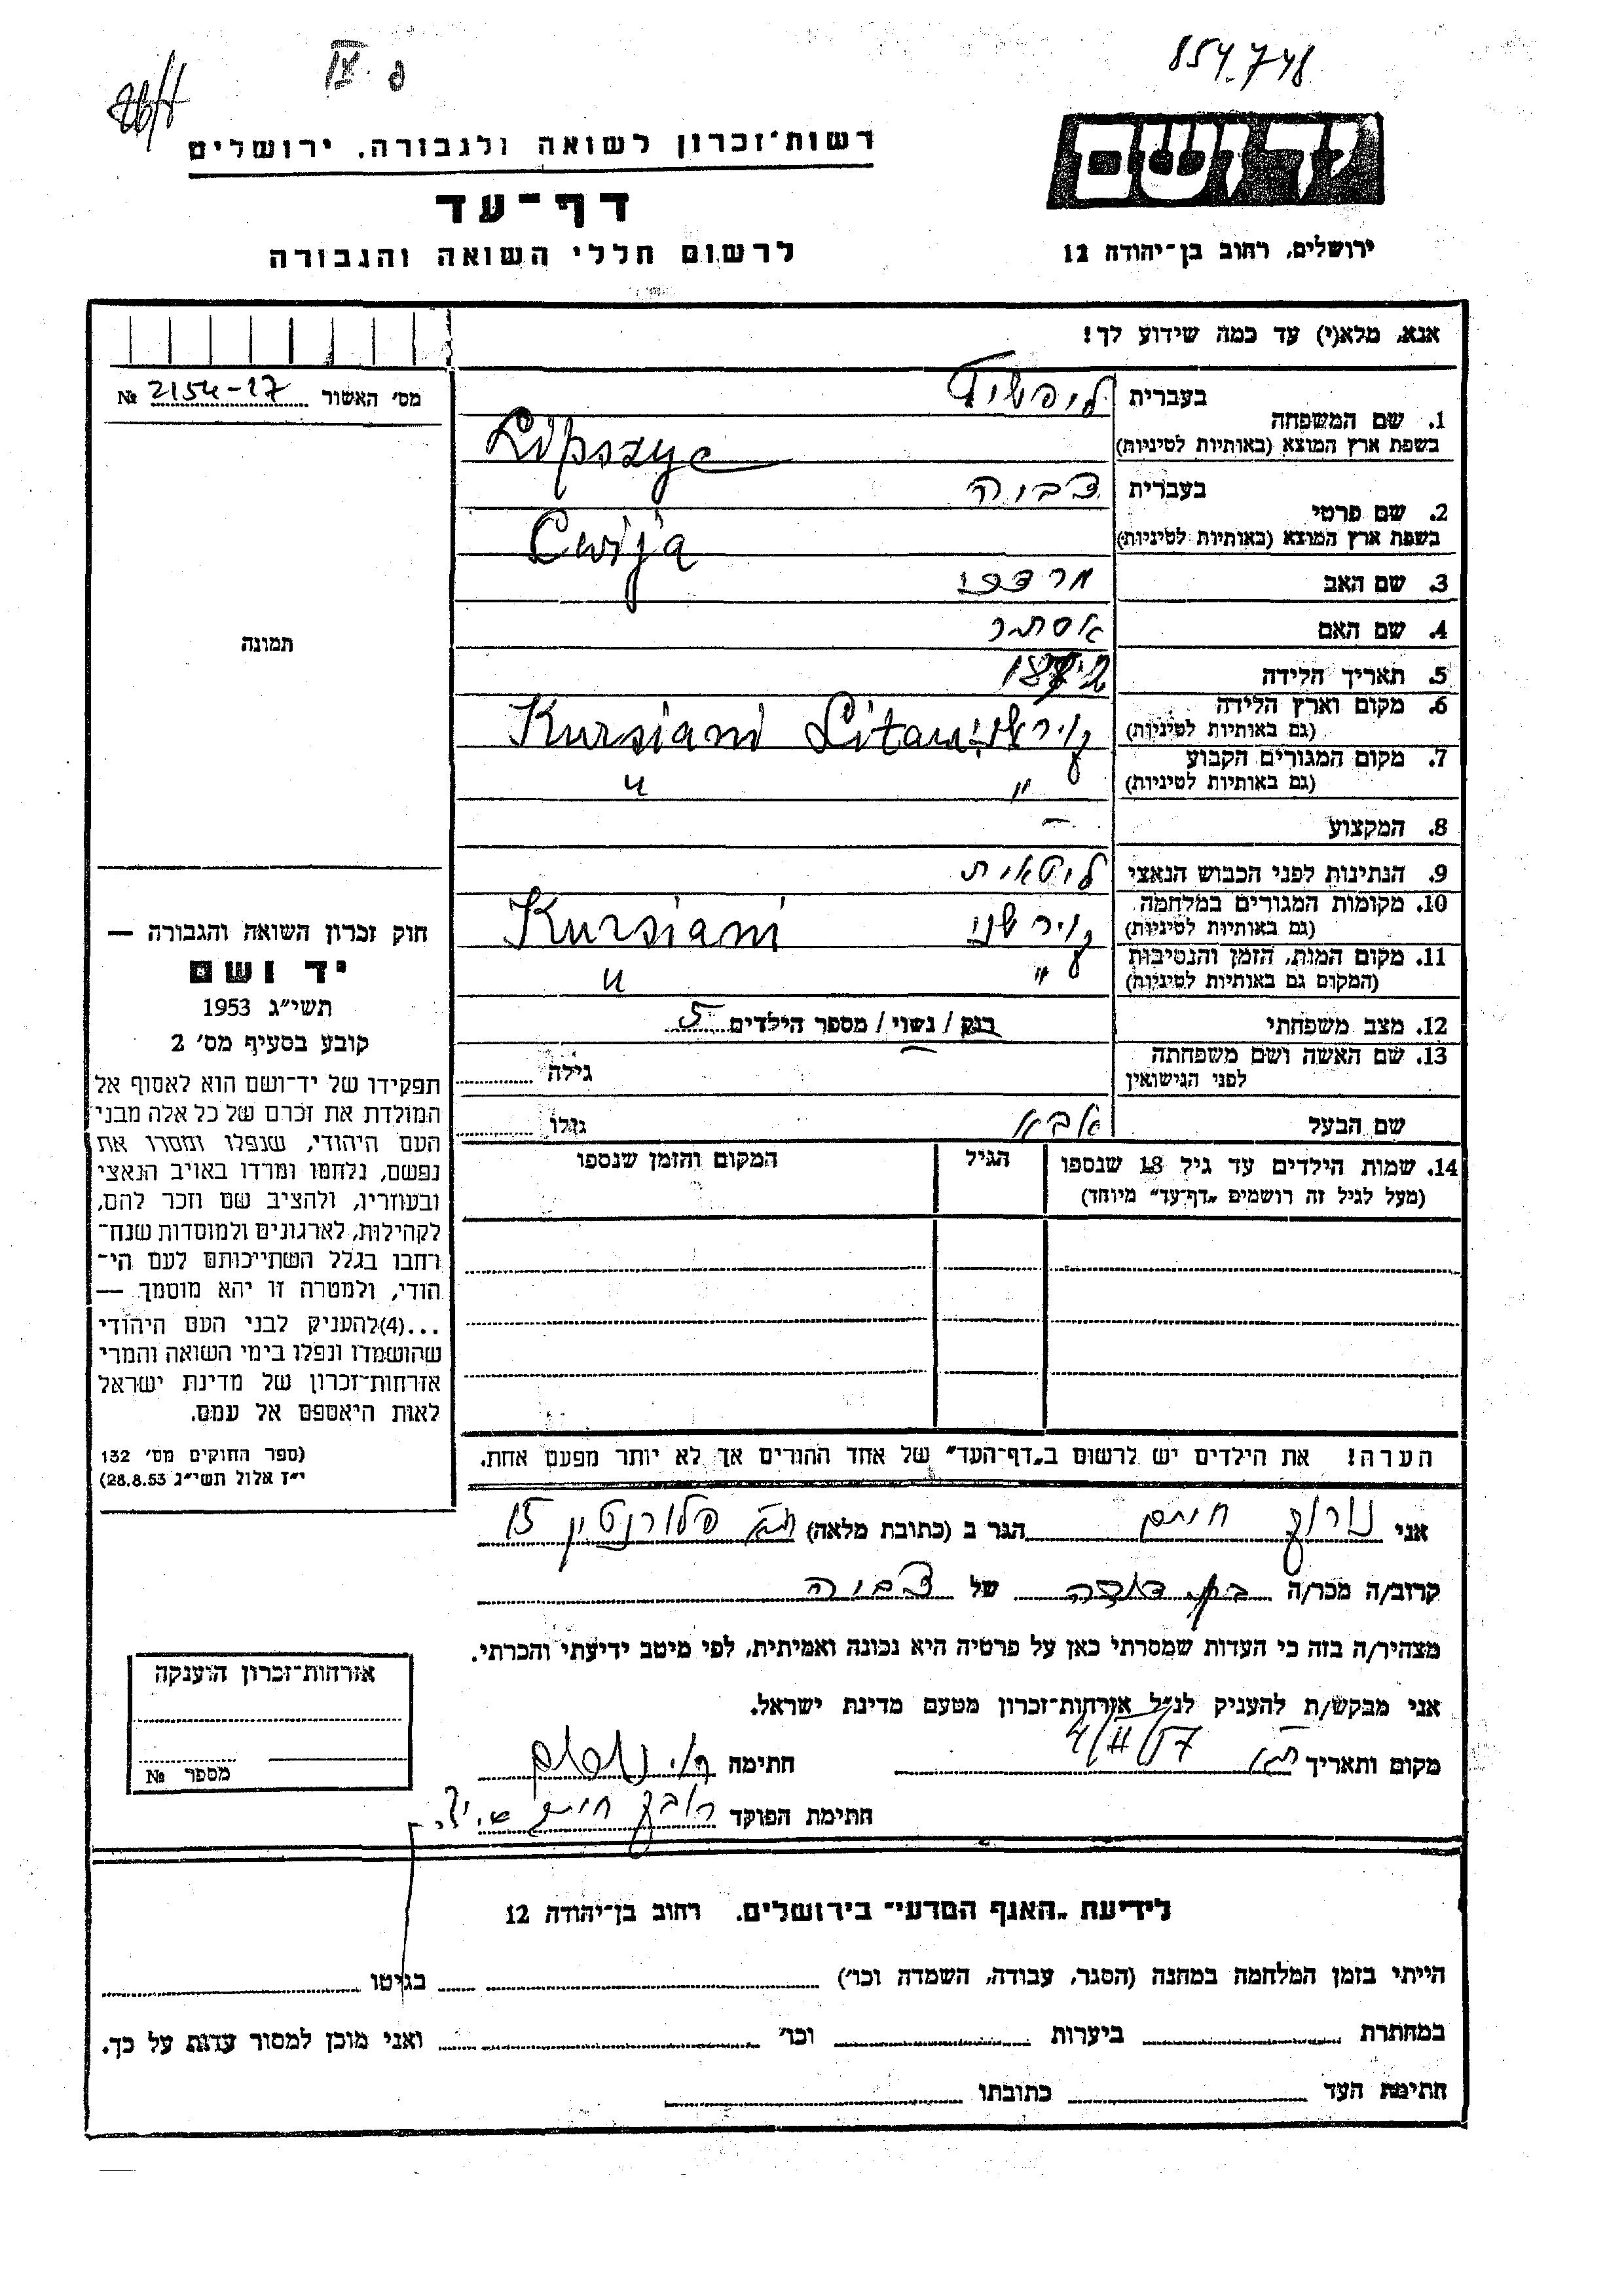 854.748
IX. פ
יד ושם
רשות־זכרון לשואה ולגבורה, ירושלים
דף־עד
לרשום חללי השואה והגבורה
ירושלים, רחוב בן־יהודה 12
אנא, מלא(י) עד כמה שידוע לך!
מס׳ האשור 2154-17 №
תמונה
בעברית ליפשיץ
1. שם המשפחה
בשפת ארץ המוצא (באותיות לטיניות) Lipszyc
בעברית צביה
2. שם פרטי
בשפת ארץ המוצא (באותיות לטיניות) Cwija
3. שם האב מרדכי
4. שם האם אסתר
5. תאריך הלידה
6. מקום וארץ הלידה
(גם באותיות לטיניות) Kursiani
7. מקום המגורים הקבוע
(גם באותיות לטיניות) " "
8. המקצוע –
9. הנתינות לפני הכבוש הנאצי ליטאית
10. מקומות המגורים במלחמה
(גם באותיות לטיניות) קורשני Kursiani
11. מקום המות, הזמן והנסיבות
(המקום גם באותיות לטיניות) " "
12. מצב משפחתי רווק / נשוי / מספר הילדים 5
13. שם האשה ושם משפחתה
לפני הנישואין – גילה
שם הבעל אבא גילו
14. שמות הילדים עד גיל 18 שנספו
(מעל לגיל זה רושמים „דף־עד״ מיוחד)
הגיל
המקום והזמן שנספו
הערה! את הילדים יש לרשום ב„דף־העד״ של אחד ההורים אך לא יותר מפעם אחת.
חוק זכרון השואה והגבורה —
יד ושם
תשי״ג 1953
קובע בסעיף מס׳ 2
תפקידו של יד־ושם הוא לאסוף אל
המולדת את זכרם של כל אלה מבני
העם היהודי, שנפלו ומסרו את
נפשם, נלחמו ומרדו באויב הנאצי
ובעוזריו, ולהציב שם וזכר להם,
לקהילות, לארגונים ולמוסדות שנח־
רחבו בגלל השתייכותם לעם הי־
הודי, ולמטרה זו יהא מוסמך —
...(4)להעניק לבני העם היהודי
שהושמדו ונפלו בימי השואה והמרי
אזרחות־זכרון של מדינת ישראל
לאות היאספם אל עמם.
(ספר החוקים מס׳ 132
י״ז אלול תשי״ג 28.8.53)
אני חיים הגר ב (כתובת מלאה) ת״א פלורנטין 15
קרוב/ה מכר/ה בן דודה של צביה
מצהיר/ה בזה כי העדות שמסרתי כאן על פרטיה היא נכונה ואמיתית, לפי מיטב ידיעתי והכרתי.
אני מבקש/ת להעניק לנ״ל אזרחות־זכרון מטעם מדינת ישראל.
מקום ותאריך ת״א 4/II/57 חתימה
חתימת הפוקד
אזרחות־זכרון הוענקה
מספר №
לידיעת „האגף המדעי״ בירושלים. רחוב בן־יהודה 12
הייתי בזמן המלחמה במחנה (הסגר, עבודה, השמדה וכו׳) בגיטו
במחתרת ביערות וכו׳ ואני מוכן למסור עדות על כך.
חתימת העד כתובתו